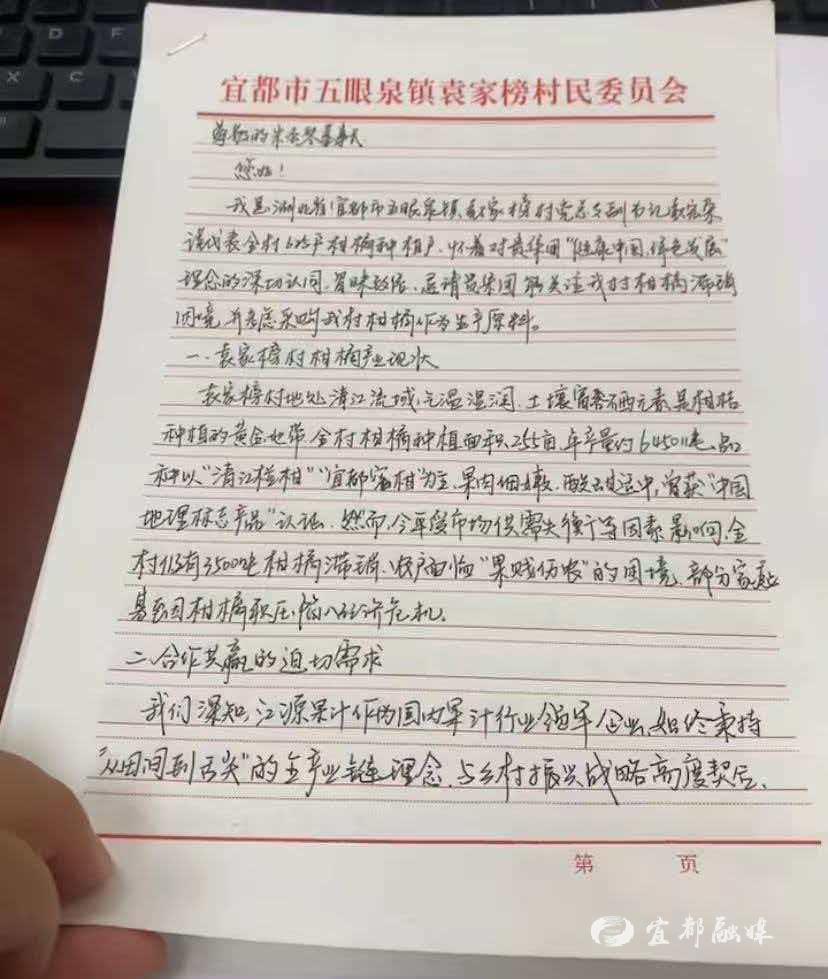 宜都市五眼泉镇袁家榜村民委员会
尊敬的朱董事长
您好！
我是湖北省宜都市五眼泉镇袁家榜村党总支副书记袁
谨代表全村625户柑橘种植户，怀着对贵集团"健康中国，绿色发展"
理念的深切认同，冒昧致信，恳请贵集团能关注我村柑橘滞销
困境，并考虑采购我村柑橘作为生产原料。
一、袁家榜村柑橘产业现状
袁家榜村地处清江流域，气温湿润，土壤富含硒元素是柑桔
种植的黄金地带，全村柑橘种植面积255亩，年产量约6450吨，品
种以"清江椪柑""宜都蜜柑"为主，果肉细嫩，酸甜适中，曾获"中国
地理标志产品"认证。然而，今年受市场供需失衡等因素影响，全
村仍有3500吨柑橘滞销，农户面临"果贱伤农"的困境，部分家庭
甚至因柑橘积压陷入经济危机。
二、合作共赢的迫切需求
我们深知，江源果汁作为国内果汁行业领军企业，始终秉持
"从田间到舌尖"的全产业链理念，与乡村振兴战略高度契合，
第 页
宜都融媒